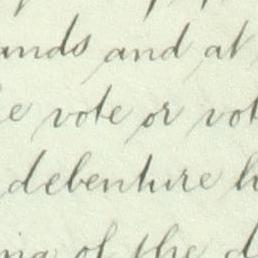 ands and at
e vote or vot
debenture h
ing of the d